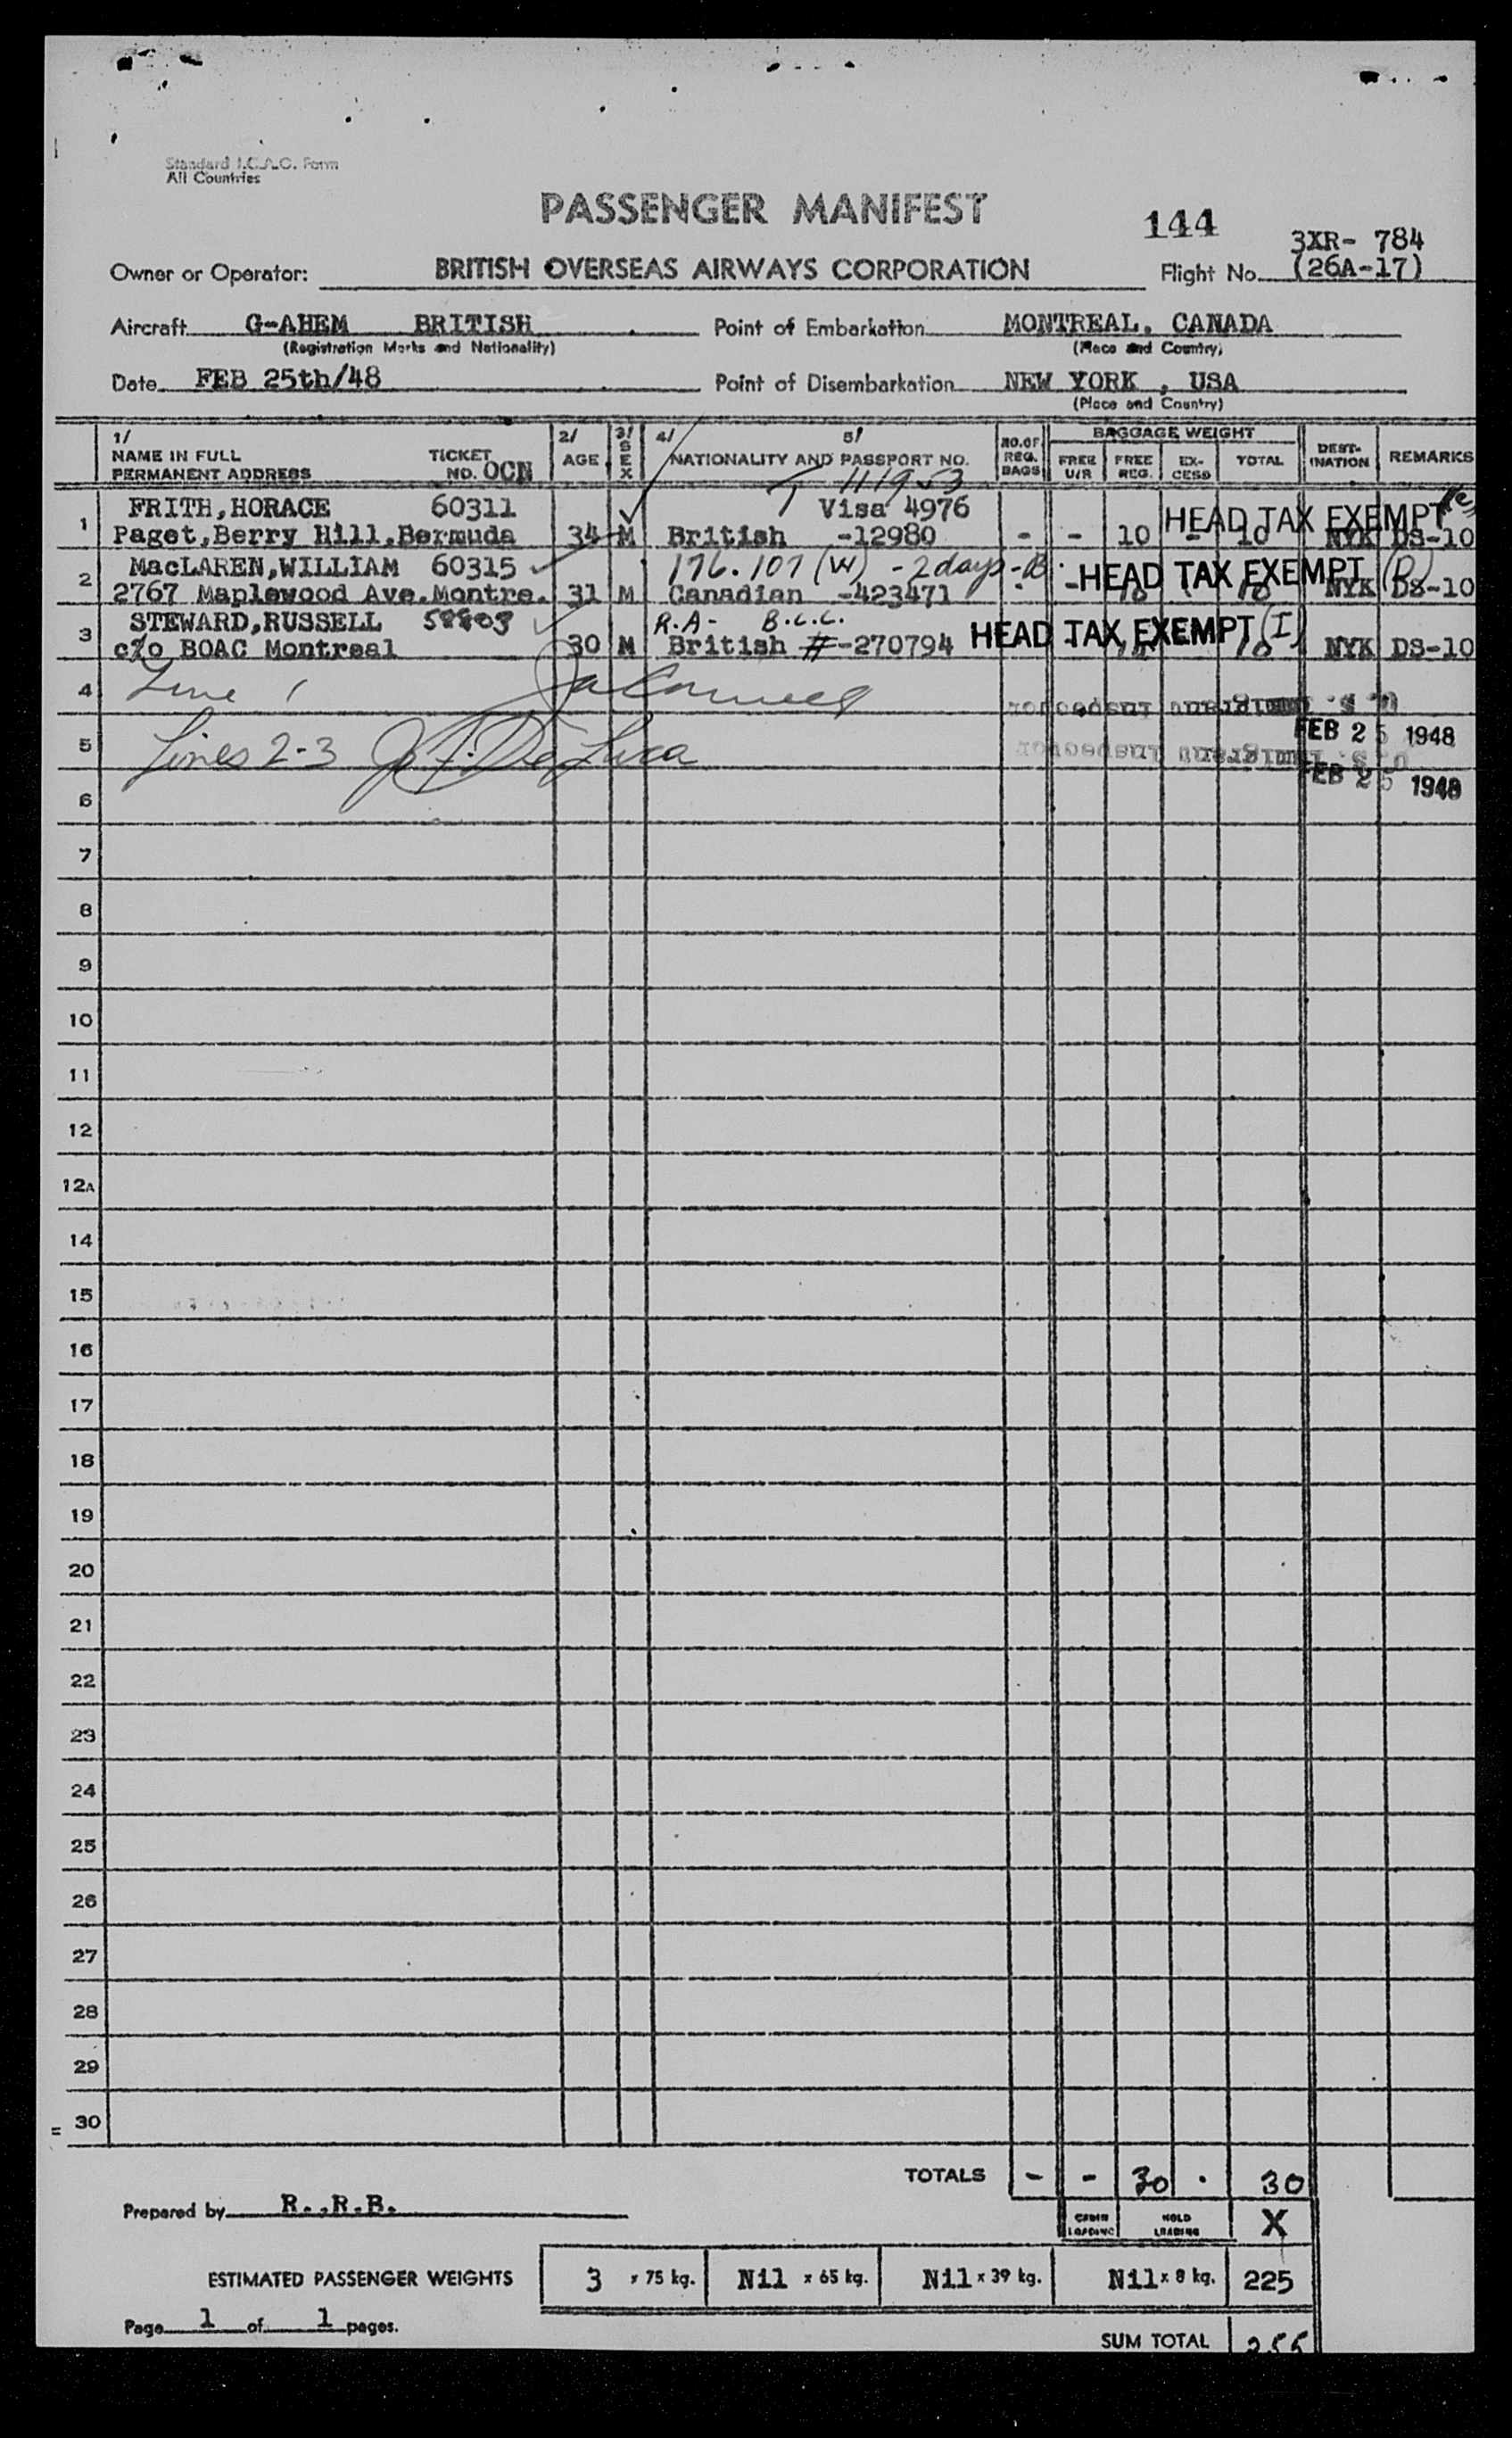 Standard I.C.A.O. Form
All Countries
PASSENGER MANIFEST
144
3XR- 784
Owner or Operator: BRITISH OVERSEAS AIRWAYS CORPORATION Flight No. (26A-17)
Aircraft G-AHEM BRITISH Point of Embarkation MONTREAL, CANADA
(Registration Marks and Nationality) (Place and Country)
Date FEB 25th/48 Point of Disembarkation NEW YORK , USA
(Place and Country)
1/ NAME IN FULL PERMANENT ADDRESS TICKET NO. OCN 2/ AGE 3/ SEX 4/ 5/ NATIONALITY AND PASSPORT NO. NO. OF REG. BAGS BAGGAGE WEIGHT FREE U/R FREE REG. EX-CESS TOTAL DEST-INATION REMARKS
T 111953
FRITH,HORACE 60311 Visa 4976 HEAD TAX EXEMPT
1 Paget,Berry Hill,Bermuda 34 M British -12980 - - 10 - 10 NYK DS-10
MacLAREN,WILLIAM 60315 176.107 (W) - 2 days - B HEAD TAX EXEMPT
2 2767 Maplewood Ave.Montre. 31 M Canadian -423471 - - 10 10 NYK DS-10
STEWARD,RUSSELL R.A- B.C.C. HEAD TAX EXEMPT (I)
3 c/o BOAC Montreal 30 M British #-270794 10 10 NYK DS-10
4 Line 1
U. S. Immigrant Inspector
FEB 25 1948
5 Lines 2-3 J. F. DeLuca
U. S. Immigrant Inspector
FEB 25 1948
6
7
8
9
10
11
12
12A
14
15
16
17
18
19
20
21
22
23
24
25
26
27
28
29
30
TOTALS - - 30 . 30
Prepared by R.,R.B.
CABIN LOADING HOLD LOADING X
ESTIMATED PASSENGER WEIGHTS 3 x 75 kg. Nil x 65 kg. Nil x 39 kg. Nil x 8 kg. 225
Page 1 of 1 pages.
SUM TOTAL 255